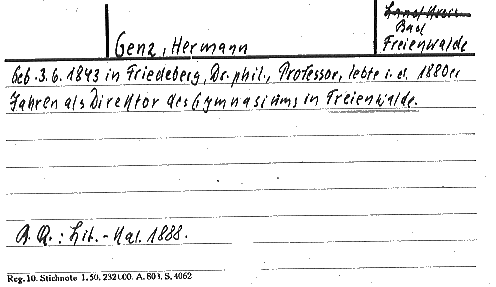 Genz, Hermann
Bad
Freienwalde
Geb. 3.6.1843 in Friedeberg, Dr. phil., Professor, lebte i. d. 1880er
Jahren als Direktor des Gymnasiums in Freienwalde.
A. Q.: Lit.-Kal. 1888.
Reg. 10. Stichnote 1.50, 232000. A. 803. S. 4062